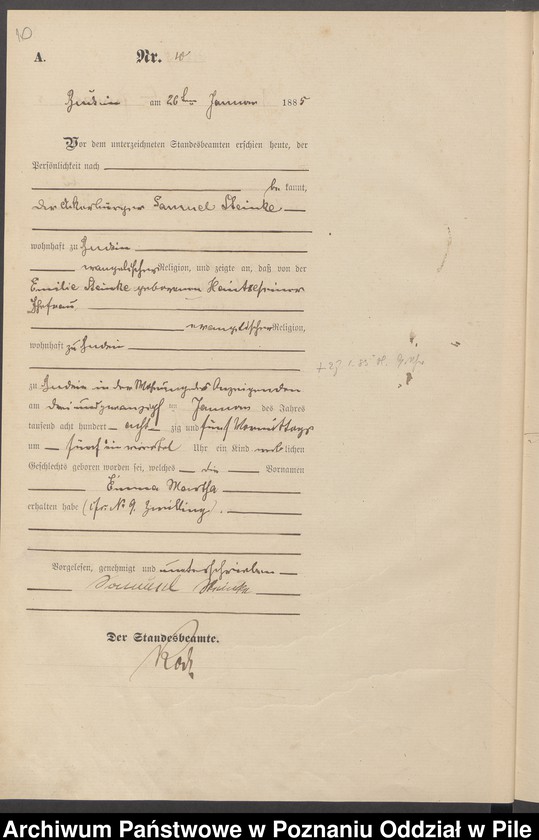 10
A. Nr. 10
am 26ten Januar 1885
Vor dem unterzeichneten Standesbeamten erschien heute, der
Persönlichkeit nach
be kannt,
der Ackerbürger Samuel Steinke
wohnhaft zu
evangelischer Religion, und zeigte an, daß von der
Emilie Steinke geborenen
Ehefrau
evangelischer Religion,
wohnhaft zu
zu in der Wohnung des Anzeigenden
am drei und zwanzigsten Januar des Jahres
tausend acht hundert acht zig und fünf Vormittags
um fünf ein viertel Uhr ein Kind weiblichen
Geschlechts geboren worden sei, welches die Vornamen
Emma Martha
erhalten habe (cfr. No 9. Zwilling).
Vorgelesen, genehmigt und unterschrieben
Samuel Steinke
Der Standesbeamte.
Archiwum Państwowe w Poznaniu Oddział w Pile